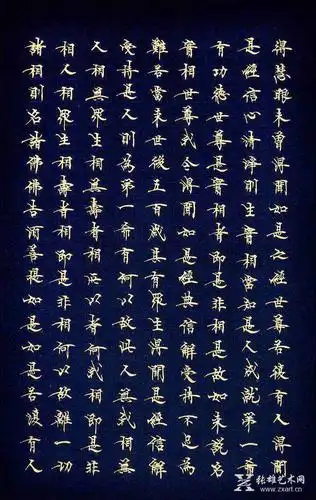 得慧眼未曾得聞如是之經世尊若復有人得聞
是經信心清淨則生實相當知是人成就第一希
有功德世尊是實相者即是非相是故如來說名
實相世尊我今得聞如是經典信解受持不足為
難若當來世後五百歲其有眾生得聞是經信解
受持是人則為第一希有何以故此人無我相無
人相無眾生相無壽者相所以者何我相即是非
相人相眾生相壽者相即是非相何以故離一切
諸相則名諸佛佛告須菩提如是如是若復有人
张雄艺术网
www.zxart.cn